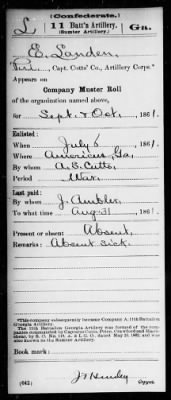 (Confederate.)
L 11 Batt'n Artillery. Ga.
(Sumter Artillery.)
E. Landen,
Capt. Cutts' Co., Artillery Corps.*
Appears on
Company Muster Roll
of the organization named above,
for Sept. & Oct., 1861.
Enlisted:
When July 6, 1861.
Where Americus Ga.
By whom A. S. Cutts.
Period War.
Last paid:
By whom J. Ambler.
To what time Aug. 31, 1861.
Present or absent Absent.
Remarks: Absent sick.
*This company subsequently became Company A, 11th Battalion Georgia Artillery.
The 11th Battalion Georgia Artillery was formed of the companies commanded by Captains Cutts, Price,
and was also known as the Sumter Battalion Artillery.
Book mark:
(642)
Copyist.